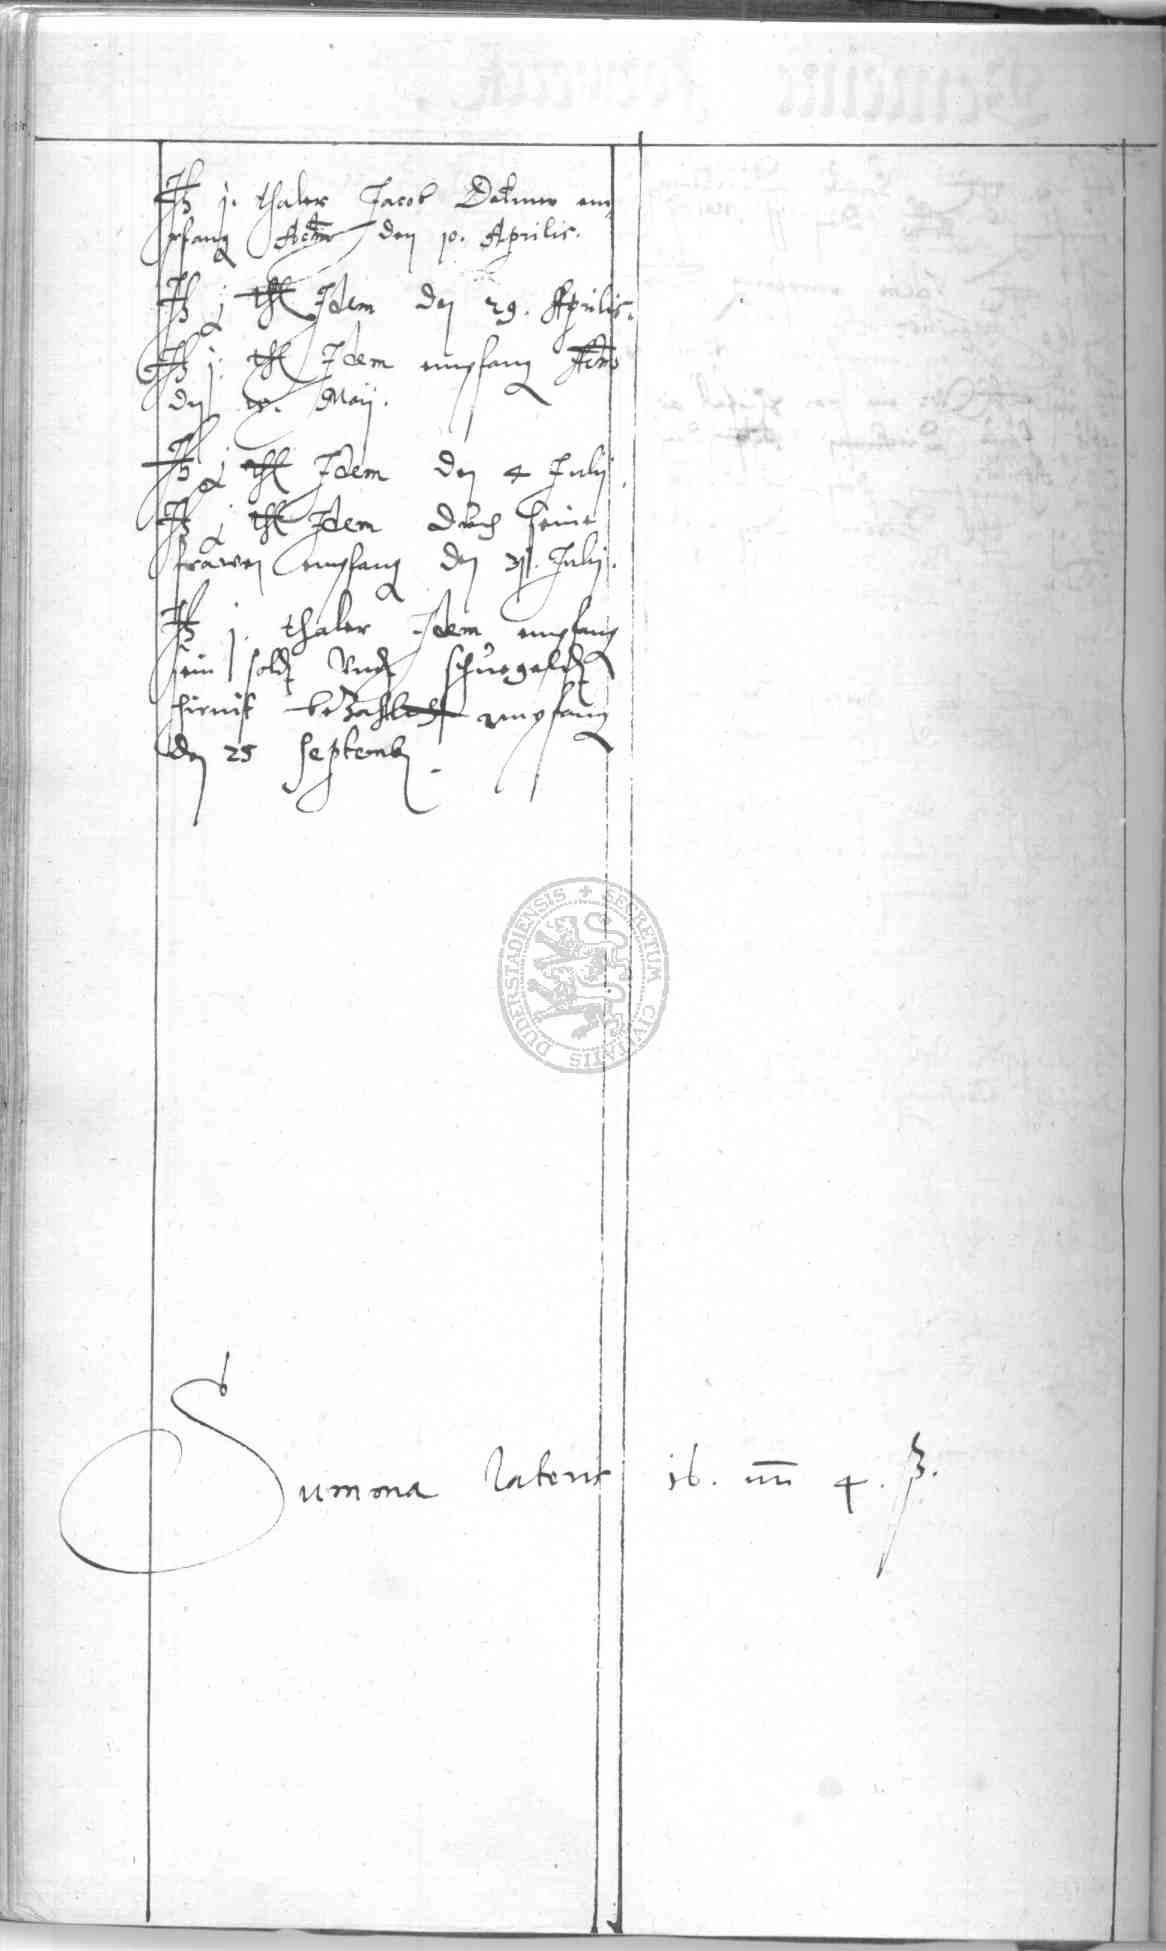 It j. thaler Jacob em
pfang Actm den 10. Aprilis.
It j thl Idem den 29. Aprilis.
It j. thl Idem empfang Actm
den Maij.
It j thl Idem den 4 Julij
It j thl Idem durch seine
frawen empfang den Julij.
It j. thaler Idem empfang
sein soldt vndt schuegeldt
hirmit bezahlt empfang
den 25 Septemb
DUDERSTADIENSIS + SECRETUM CIVITATIS
Summa lateris 16. m 4. ß.